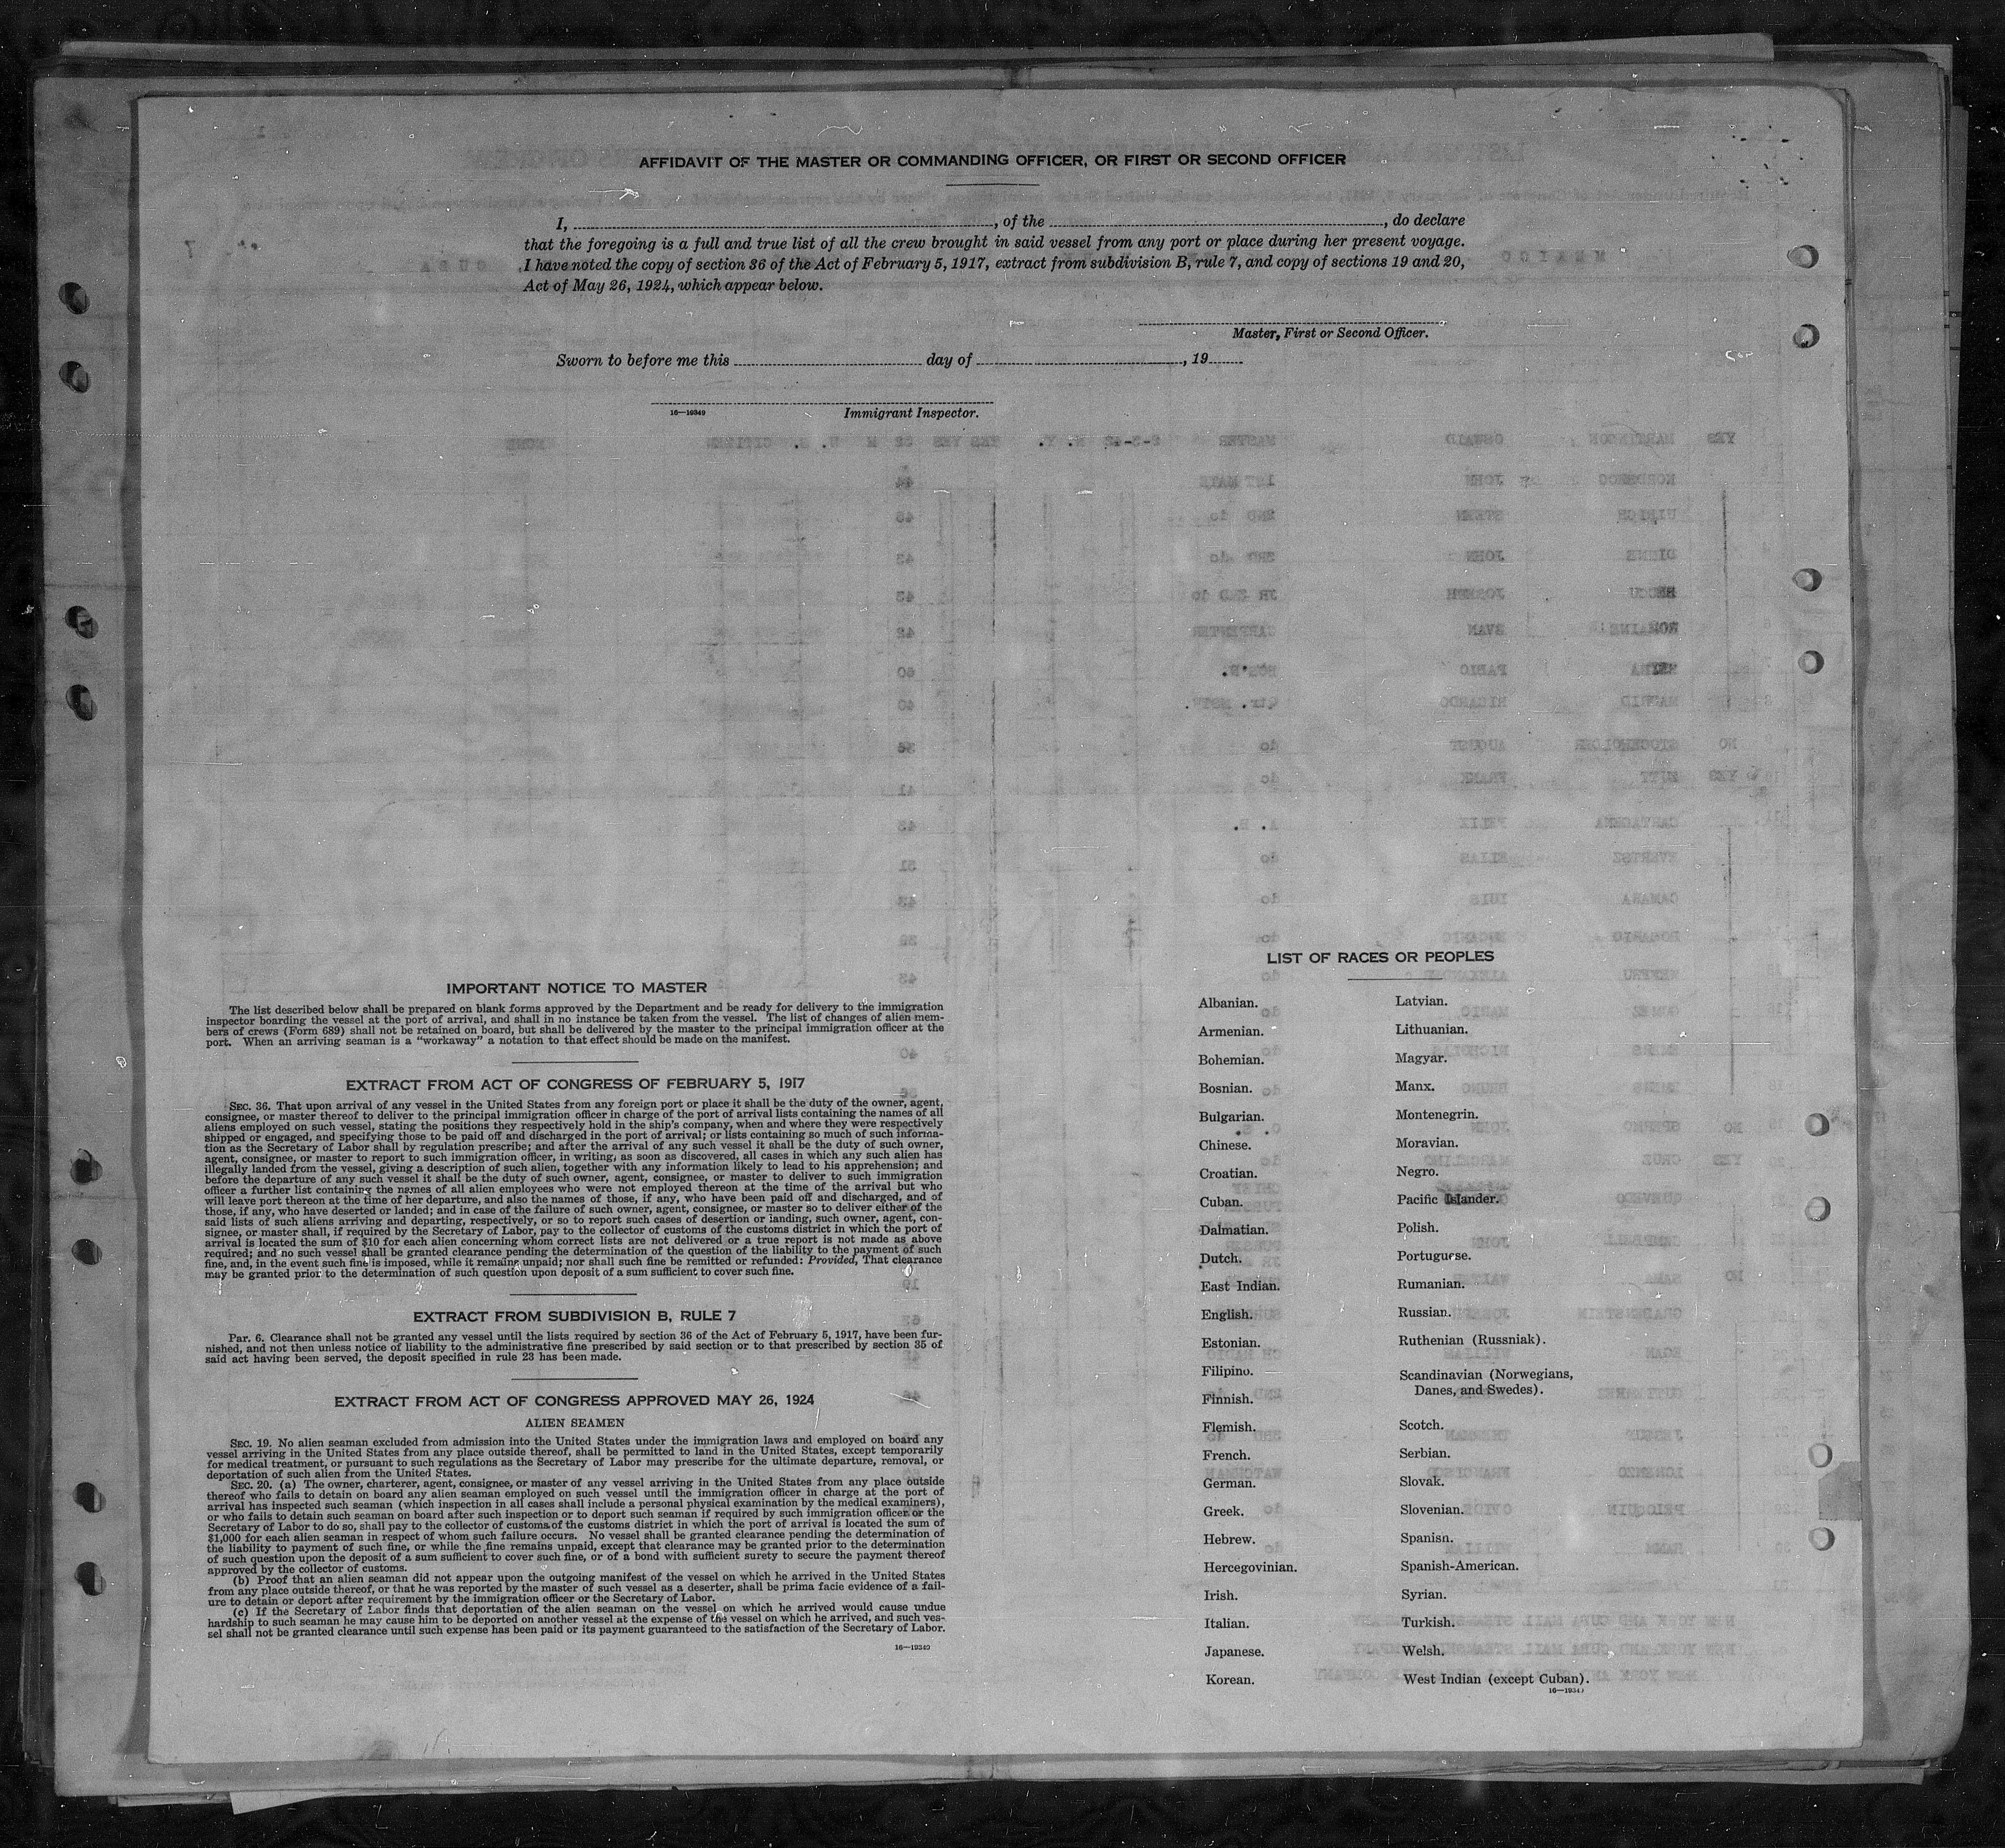 AFFIDAVIT OF THE MASTER OR COMMANDING OFFICER, OR FIRST OR SECOND OFFICER
I, , of the , do declare
that the foregoing is a full and true list of all the crew brought in said vessel from any port or place during her present voyage.
I have noted the copy of section 36 of the Act of February 5, 1917, extract from subdivision B, rule 7, and copy of sections 19 and 20,
Act of May 26, 1924, which appear below.
Master, First or Second Officer.
Sworn to before me this day of , 19
16—19349 Immigrant Inspector.
IMPORTANT NOTICE TO MASTER
The list described below shall be prepared on blank forms approved by the Department and be ready for delivery to the immigration
inspector boarding the vessel at the port of arrival, and shall in no instance be taken from the vessel. The list of changes of alien mem-
bers of crews (Form 689) shall not be retained on board, but shall be delivered by the master to the principal immigration officer at the
port. When an arriving seaman is a "workaway" a notation to that effect should be made on the manifest.
EXTRACT FROM ACT OF CONGRESS OF FEBRUARY 5, 1917
SEC. 36. That upon arrival of any vessel in the United States from any foreign port or place it shall be the duty of the owner, agent,
consignee, or master thereof to deliver to the principal immigration officer in charge of the port of arrival lists containing the names of all
aliens employed on such vessel, stating the positions they respectively hold in the ship's company, when and where they were respectively
shipped or engaged, and specifying those to be paid off and discharged in the port of arrival; or lists containing so much of such informa-
tion as the Secretary of Labor shall by regulation prescribe; and after the arrival of any such vessel it shall be the duty of such owner,
agent, consignee, or master to report to such immigration officer, in writing, as soon as discovered, all cases in which any such alien has
illegally landed from the vessel, giving a description of such alien, together with any information likely to lead to his apprehension; and
before the departure of any such vessel it shall be the duty of such owner, agent, consignee, or master to deliver to such immigration
officer a further list containing the names of all alien employees who were not employed thereon at the time of the arrival but who
will leave port thereon at the time of her departure, and also the names of those, if any, who have been paid off and discharged, and of
those, if any, who have deserted or landed; and in case of the failure of such owner, agent, consignee, or master so to deliver either of the
said lists of such aliens arriving and departing, respectively, or so to report such cases of desertion or landing, such owner, agent, con-
signee, or master shall, if required by the Secretary of Labor, pay to the collector of customs of the customs district in which the port of
arrival is located the sum of $10 for each alien concerning whom correct lists are not delivered or a true report is not made as above
required; and no such vessel shall be granted clearance pending the determination of the question of the liability to the payment of such
fine, and, in the event such fine is imposed, while it remains unpaid; nor shall such fine be remitted or refunded: Provided, That clearance
may be granted prior to the determination of such question upon deposit of a sum sufficient to cover such fine.
EXTRACT FROM SUBDIVISION B, RULE 7
Par. 6. Clearance shall not be granted any vessel until the lists required by section 36 of the Act of February 5, 1917, have been fur-
nished, and not then unless notice of liability to the administrative fine prescribed by said section or to that prescribed by section 35 of
said act having been served, the deposit specified in rule 23 has been made.
EXTRACT FROM ACT OF CONGRESS APPROVED MAY 26, 1924
ALIEN SEAMEN
SEC. 19. No alien seaman excluded from admission into the United States under the immigration laws and employed on board any
vessel arriving in the United States from any place outside thereof, shall be permitted to land in the United States, except temporarily
for medical treatment, or pursuant to such regulations as the Secretary of Labor may prescribe for the ultimate departure, removal, or
deportation of such alien from the United States.
SEC. 20. (a) The owner, charterer, agent, consignee, or master of any vessel arriving in the United States from any place outside
thereof who fails to detain on board any alien seaman employed on such vessel until the immigration officer in charge at the port of
arrival has inspected such seaman (which inspection in all cases shall include a personal physical examination by the medical examiners),
or who fails to detain such seaman on board after such inspection or to deport such seaman if required by such immigration officer or the
Secretary of Labor to do so, shall pay to the collector of customs of the customs district in which the port of arrival is located the sum of
$1,000 for each alien seaman in respect of whom such failure occurs. No vessel shall be granted clearance pending the determination of
the liability to payment of such fine, or while the fine remains unpaid, except that clearance may be granted prior to the determination
of such question upon the deposit of a sum sufficient to cover such fine, or of a bond with sufficient surety to secure the payment thereof
approved by the collector of customs.
(b) Proof that an alien seaman did not appear upon the outgoing manifest of the vessel on which he arrived in the United States
from any place outside thereof, or that he was reported by the master of such vessel as a deserter, shall be prima facie evidence of a fail-
ure to detain or deport after requirement by the immigration officer or the Secretary of Labor.
(c) If the Secretary of Labor finds that deportation of the alien seaman on the vessel on which he arrived would cause undue
hardship to such seaman he may cause him to be deported on another vessel at the expense of the vessel on which he arrived, and such ves-
sel shall not be granted clearance until such expense has been paid or its payment guaranteed to the satisfaction of the Secretary of Labor.
16—19349
LIST OF RACES OR PEOPLES
Albanian.
Armenian.
Bohemian.
Bosnian.
Bulgarian.
Chinese.
Croatian.
Cuban.
Dalmatian.
Dutch.
East Indian.
English.
Estonian.
Filipino.
Finnish.
Flemish.
French.
German.
Greek.
Hebrew.
Hercegovinian.
Irish.
Italian.
Japanese.
Korean.
Latvian.
Lithuanian.
Magyar.
Manx.
Montenegrin.
Moravian.
Negro.
Pacific Islander.
Polish.
Portuguese.
Rumanian.
Russian.
Ruthenian (Russniak).
Scandinavian (Norwegians,
Danes, and Swedes).
Scotch.
Serbian.
Slovak.
Slovenian.
Spanish.
Spanish-American.
Syrian.
Turkish.
Welsh.
West Indian (except Cuban).
16—19349